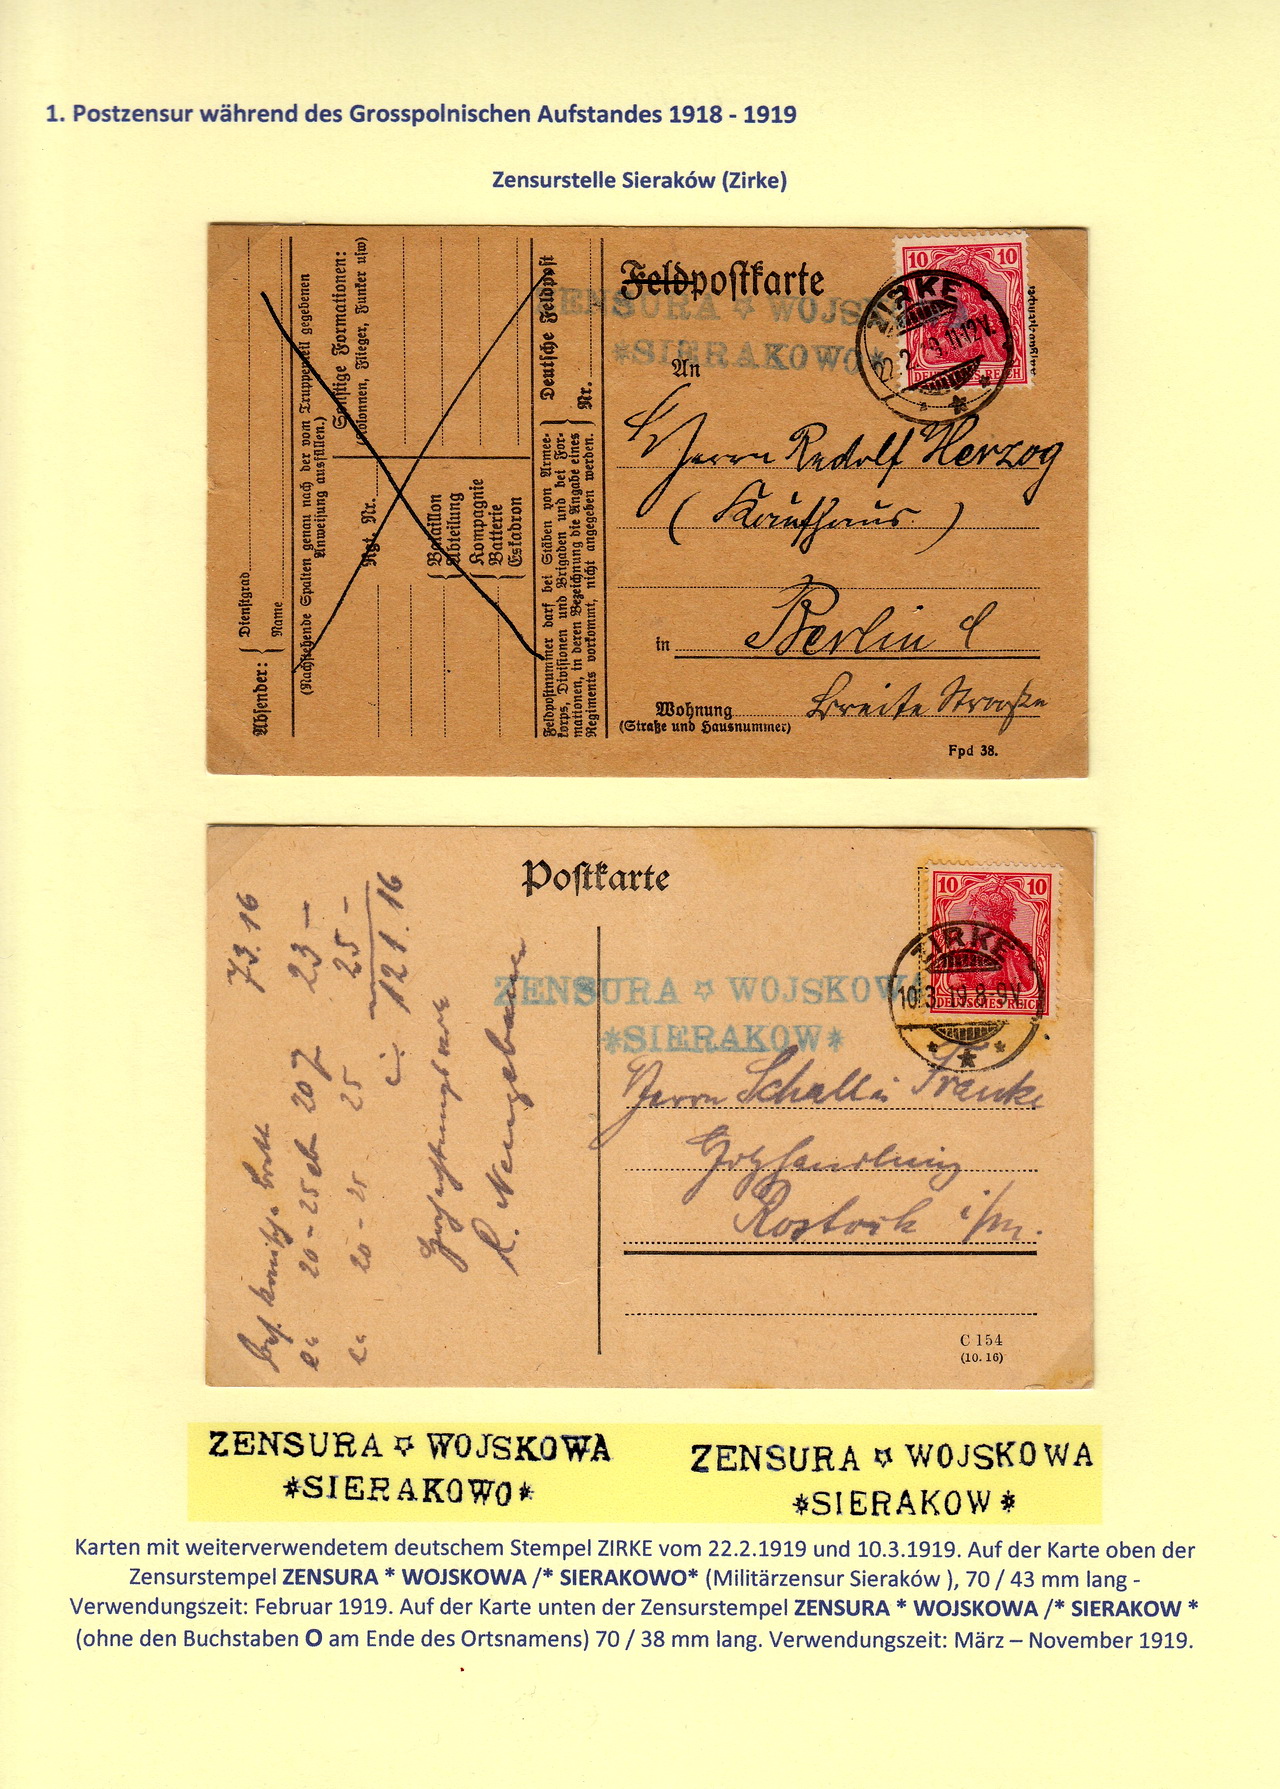 1. Postzensur während des Grosspolnischen Aufstandes 1918 - 1919
Zensurstelle Sieraków (Zirke)
Absender:
Dienstgrad
Name
(Nachstehende Spalten genau nach der vom Truppenteil gegebenen
Anweisung ausfüllen.)
Sonstige Formationen:
(Kolonnen, Flieger, Funker usw)
Rgt. Nr.
Bataillon
Abteilung
Kompagnie
Batterie
Eskadron
Deutsche Feldpost
Nr.
Feldpostnummer darf bei Stäben von Armee-
korps, Divisionen und Brigaden und bei For-
mationen, in deren Bezeichnung die Angabe eines
Regiments vorkommt, nicht angegeben werden.
Feldpostkarte
ZENSURA ☆ WOJS
*SIERAKOWO*
10 10
DEUTSCHES REICH
ZIRKE
22.2. 9.11-12V.
An
Herrn Rudolf Herzog
(Kaufhaus)
in Berlin C
Wohnung Breite Straße
(Straße und Hausnummer)
Fpd 38.
Postkarte
10 10
DEUTSCHES REICH
ZIRKE
10.3.19.8-9V.
ZENSURA ☆ WOJSKOWA
*SIERAKOW*
73.16
23 -
25 -
121.16
20 - 25
20 - 25
R. Neugebauer
Herrn Schall & Francke
Holzhandlung
Rostock i/m.
C 154
(10. 16)
ZENSURA ☆ WOJSKOWA
*SIERAKOWO*
ZENSURA ☆ WOJSKOWA
*SIERAKOW*
Karten mit weiterverwendetem deutschem Stempel ZIRKE vom 22.2.1919 und 10.3.1919. Auf der Karte oben der
Zensurstempel ZENSURA * WOJSKOWA /* SIERAKOWO* (Militärzensur Sieraków ), 70 / 43 mm lang -
Verwendungszeit: Februar 1919. Auf der Karte unten der Zensurstempel ZENSURA * WOJSKOWA /* SIERAKOW *
(ohne den Buchstaben O am Ende des Ortsnamens) 70 / 38 mm lang. Verwendungszeit: März – November 1919.